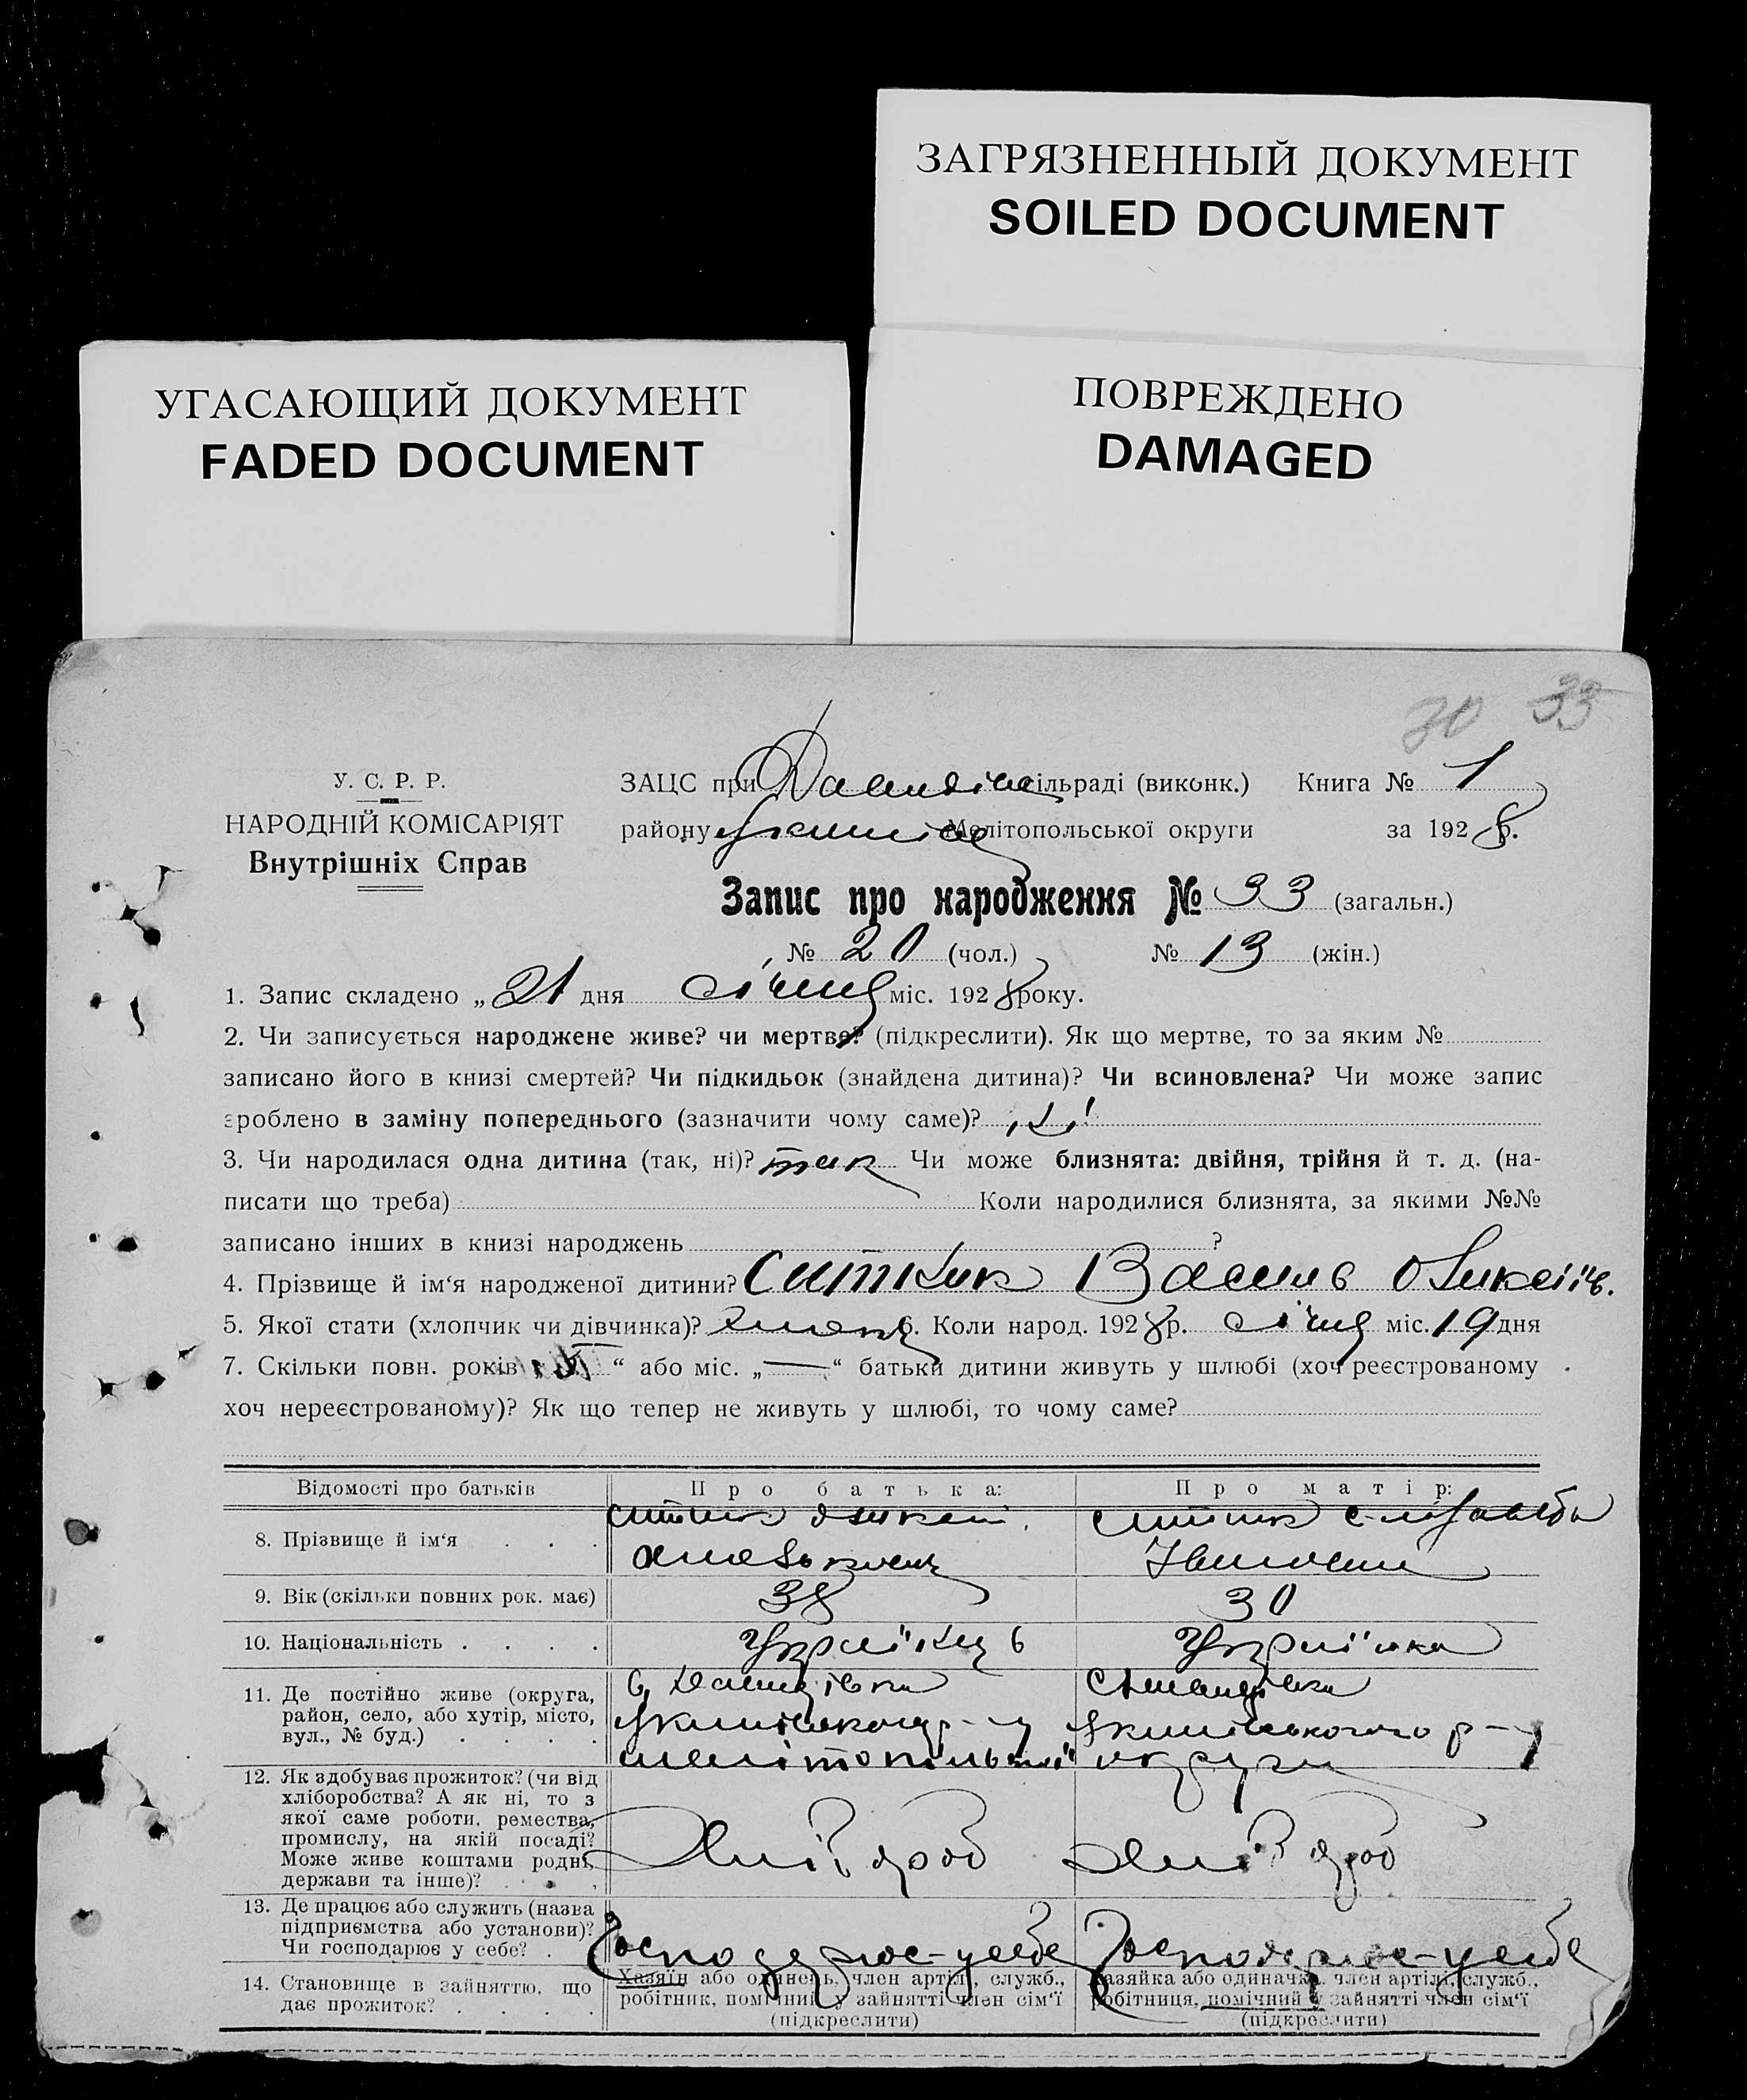 ЗАГРЯЗНЕННЫЙ ДОКУМЕНТ
SOILED DOCUMENT
УГАСАЮЩИЙ ДОКУМЕНТ
FADED DOCUMENT
ПОВРЕЖДЕНО
DAMAGED
30 33
У. С. Р. Р.
НАРОДНІЙ КОМІСАРІЯТ
Внутрішніх Справ
ЗАЦС при сільраді (виконк.) Книга № 1
району Мелітопольської округи за 1928 р.
Запис про народження № 33 (загальн.)
№ 20 (чол.) № 13 (жін.)
1. Запис складено „ 21 дня січня міс. 1928 року.
2. Чи записується народжене живе? чи мертве? (підкреслити). Як що мертве, то за яким №
записано його в книзі смертей? Чи підкидьок (знайдена дитина)? Чи всиновлена? Чи може запис
зроблено в заміну попереднього (зазначити чому саме)?
3. Чи народилася одна дитина (так, ні)? так Чи може близнята: двійня, трійня й т. д. (на-
писати що треба) Коли народилися близнята, за якими №№
записано інших в книзі народжень ?
4. Прізвище й ім‘я народженої дитини? Ситник Василь Олексіїв.
5. Якої стати (хлопчик чи дівчинка)? 6. Коли народ. 1928 р. січня міс. 19 дня
7. Скільки повн. років „ “ або міс. „ — “ батьки дитини живуть у шлюбі (хоч реєстрованому
хоч нереєстрованому)? Як що тепер не живуть у шлюбі, то чому саме?
Відомості про батьків
Про батька:
Про матір:
8. Прізвище й ім‘я . . .
Ситник Олексій
Ситник Єлізавета
9. Вік (скільки повних рок. має)
38
30
10. Національність . . . .
Українець
Українка
11. Де постійно живе (округа,
район, село, або хутір, місто,
вул., № буд.) . . . .
р-ну
р-ну
мелітопільської округи
12. Як здобуває прожиток? (чи від
хліборобства? А як ні, то з
якої саме роботи, ремества,
промислу, на якій посаді?
Може живе коштами родні,
держави та інше)? . . .
Хлібороб
Хлібороб
13. Де працює або служить (назва
підприємства або установи)?
Чи господарює у себе? .
Господарює-у себе
Господарює-у себе
14. Становище в зайняттю, що
дає прожиток? . . . .
Хазяїн або одинець, член артілі, служб.,
робітник, помічний у зайнятті член сім‘ї
(підкреслити)
Хазяйка або одиначка, член артілі, служб.,
робітниця, помічний у зайнятті член сім‘ї
(підкреслити)